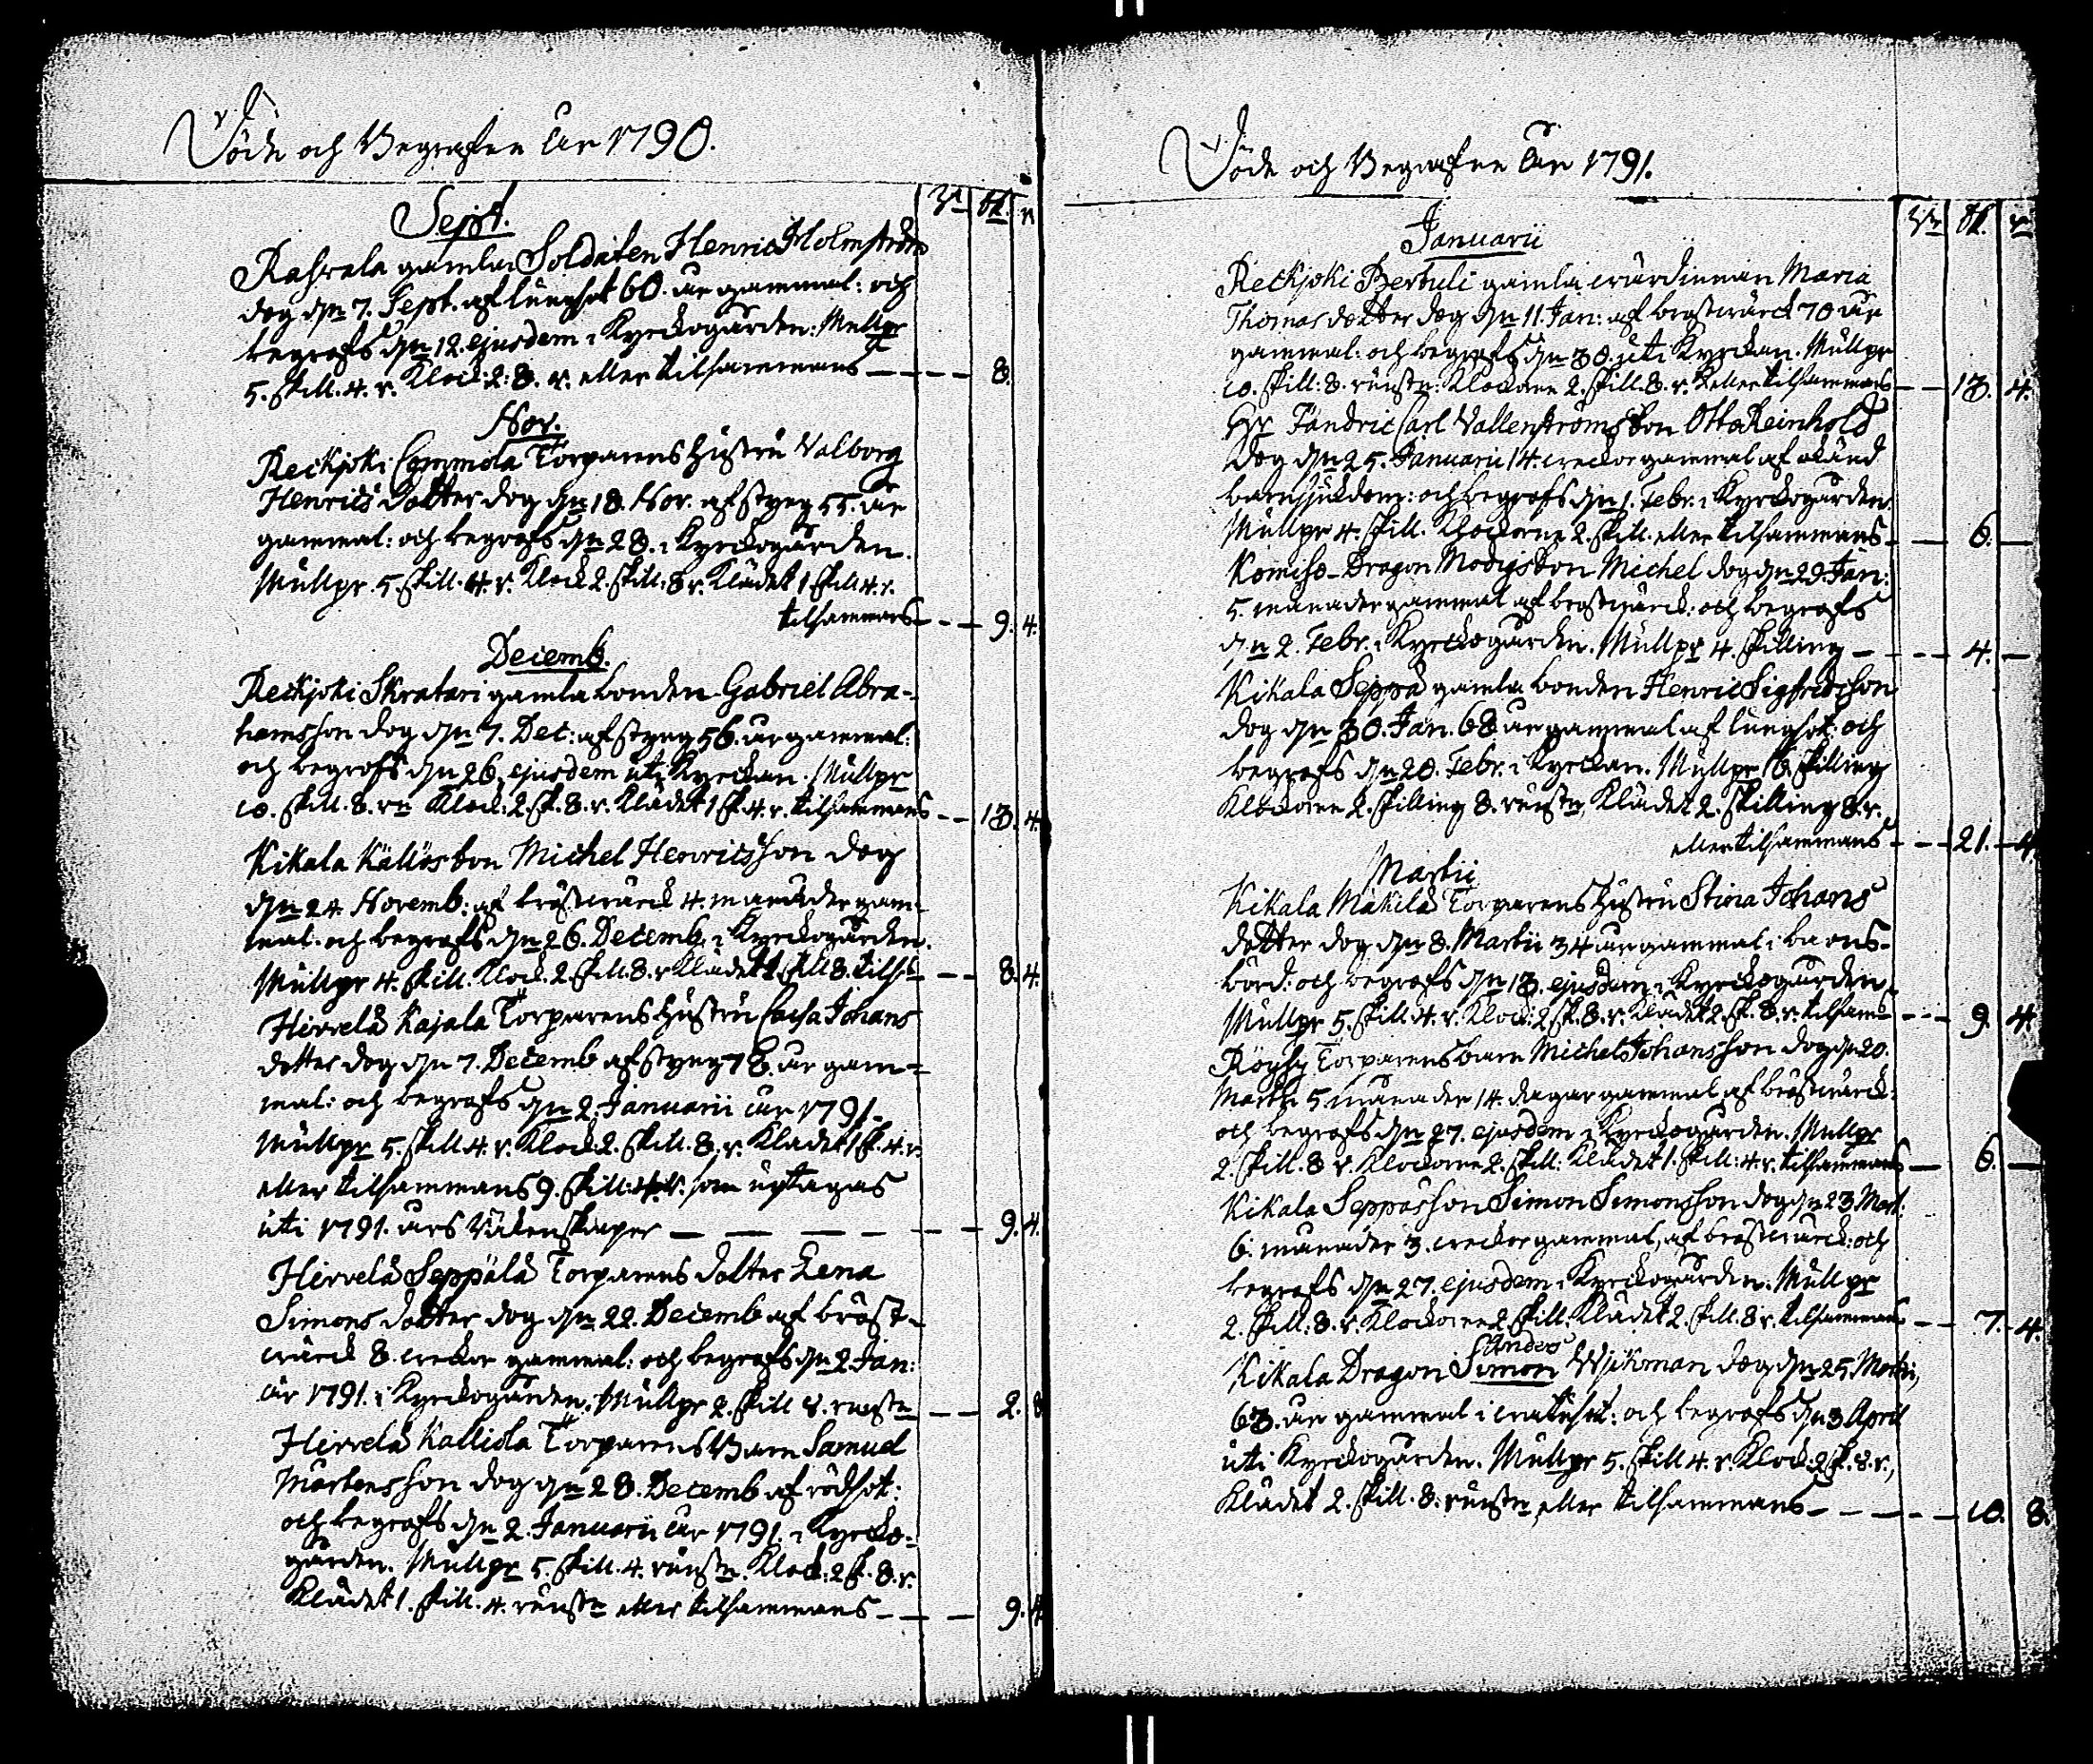 Döde och Begrafne År 1790.
Rd sk. r
Sept.
Rahvala gamla Soldaten Henric Holmström
dog d:n 7. Sept. af lungsot 60. år gammal: och
begrofs d:n 12. ejusdem i Kyrckogården: Mullpr
5. skill. 4. r. Klock: 2: 8. r. eller tilsammans — — — 8.
Nov.
Reckjoki Torparens Hustru Valborg
Henrics dotter dog d:n 18. Nov. af styng 55. år
gammal: och begrofs d:n 28. i Kyrckogården.
Mullpr. 5. skill. 4. r. Klock 2. skill: 8 r. Klädet 1 skill 4. r.
tilsammans — — — 9. 4.
Decemb.
Reckjoki Skratari gamla bonden Gabriel Abra-
hamsson dog d:n 7. Dec: af styng 56. år gammal:
och begrofs d:n 26. ejusdem uti Kyrckan. Mullpr
10. skill. 8. rn Klock: 2 sk. 8. r. Klädet 1 sk. 4. r. tilsammans — — 13. 4.
Kikala Källös son Michel Henricsson dog
d:n 24. Novemb: af bröstwärck 4. månader gam-
mal. och begrofs d:n 26. Decemb. i Kyrckogården.
Mullpr 4. skill. Klock. 2. skill. 8. r Klädet 1 skill 8. tils. — — 8. 4.
Hirvelä Kajala Torparens Hustru Caisa Johans
dotter dog d:n 7. Decemb af styng 78. år gam-
mal: och begrofs d:n 2. Januarii år 1791.
Mullpr 5. skill 4. r. Klock 2. skill. 8. r. Klädet 1 sk. 4. r.
eller tilsammans 9. skill: 4. r. som uptagas
uti 1791. års Räkenskaper — — — — — — 9. 4.
Hirvelä Seppälä Torparens dotter Lena
Simons dotter dog d:n 22. Decemb af bröst-
wärck 8. weckor gammal: och begrofs d:n 2 Jan:
år 1791. i Kyrckogården. Mullpr 2. skill 8. runst:n — — 2. 8
Hirvelä Kalliola Torparens Barn Samuel
Mårtensson dog d:n 28. Decemb af rödsot:
och begrofs d:n 2. Januarii år 1791. i Kyrcko-
gården. Mullpr 5. skill. 4. runst:n. Klock: 2 sk. 8. r.
Klädet 1. skill. 4. runst:n eller tilsammans — — — 9. 4
Döde och Begrafne År 1791.
Rd sk. r
Januarii
Reckjoki Bertuli gamla wärdinnan Maria
Thomas dotter dog d:n 11. Jan: af bröstwärck 70 år
gammal: och begrofs d:n 30. uti Kyrckan. Mullpr
10. skill: 8. runst:n: Klockorne 2. skill. 8. r. eller tilsammans — — 13. 4.
Hr Fändric Carl Vallenströms son Otto Reinhold
dog d:n 25. Januarii 14. weckor gammal af okänd
barnsjukdom: och begrofs d:n 1. Febr. i Kyrckogården.
Mullpr 4. skill. Klockorne 2. skill. eller tilsammans — — 6. —
Komiso Dragon Modigs son Michel dog d:n 29. Jan:
5. månader gammal af bröstwärck: och begrofs
d:n 2. Febr. i Kyrckogården. Mullpr 4. skilling — — — 4. —
Kikala Seppä gamla bonden Henric Sigfridsson
dog d:n 30. Jan. 68 år gammal af lungsot: och
begrofs d:n 20. Febr. i Kyrckan. Mullpr 16. skilling
Klockorne 2. skilling 8. runst:n, Klädet 2. skilling 8. r.
eller tilsammans — — 21. 4.
Martii
Kikala Mäkilä Torparens Hustru Stina Johans
dotter dog d:n 8. Martii 34 år gammal i barns-
börd: och begrofs d:n 13. ejusdem i Kyrckogården.
Mullpr 5. skill. 4. r. Klock: 2 sk. 8. r. Klädet 2. sk. 8. r. tilsam: — — — 9. 4.
Torparens barn Michel Johansson dog d:n 20.
Martii 5 månader 14. dagar gammal af bröstwärck:
och begrofs d:n 27. ejusdem i Kyrckogården. Mullpr
2. skill. 8 r. Klockorne 2. skill: Klädet 1. skill: 4. r. tilsammans — 6. —
Kikala Seppäs son Simon Simonsson dog d:n 23 Mart:
6. månader 3. weckor gammal, af bröstwärck: och
begrofs d:n 27. ejusdem i Kyrckogården. Mullpr
2. skill: 8. r. Klockorne 2 skill. Klädet 2. skill. 8 r. tilsammans — — 7. 4.
Anders
Kikala Dragon Simon Wjkman dog d:n 25 Martii,
63. år gammal i watusot: och begrofs d:n 3 April
uti Kyrckogården. Mullpr 5. skill 4. r. Klock: 2 sk. 8. r.,
Klädet 2. skill. 8. runst:n, eller tilsammans — — — — 10. 8.